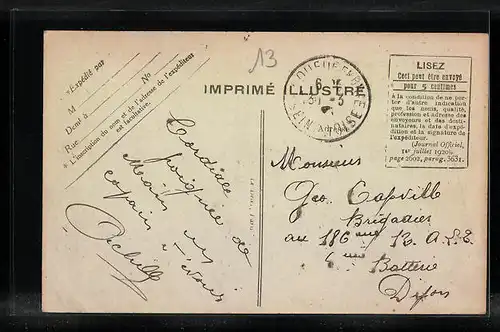 * Expédié par
M
Demt à
Rue
No
* L'inscription du nom et de l'adresse de l'expéditeur
est facultative.
13
IMPRIMÉ ILLUSTRÉ
LISEZ
Ceci peut être envoyé
pour 5 centimes
à la condition de ne por-
ter d'autre indication
que les noms, qualité,
profession et adresse des
envoyeurs et des desti-
nataires, la date d'expé-
dition et la signature de
l'expéditeur.
(Journal Officiel,
1er juillet 1920,
page 2602, parag. 3631.
Cordiale
poignée de
copain
Achille
Monsieur
Geo Capville
Brigadier
au 186eme R. A. L.
6eme Batterie
Dijon